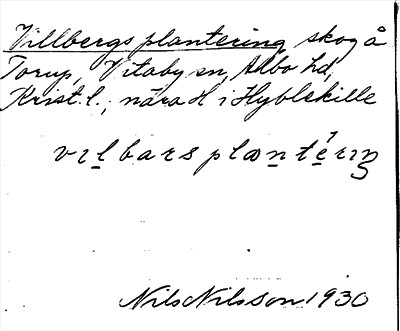 Villbergs plantering skog å
Torup, Vitaby sn, Albo hd,
Krist. l.; nära H i Hyblekille
vɪlbarsplantérɪŋ
Nils Nilsson 1930